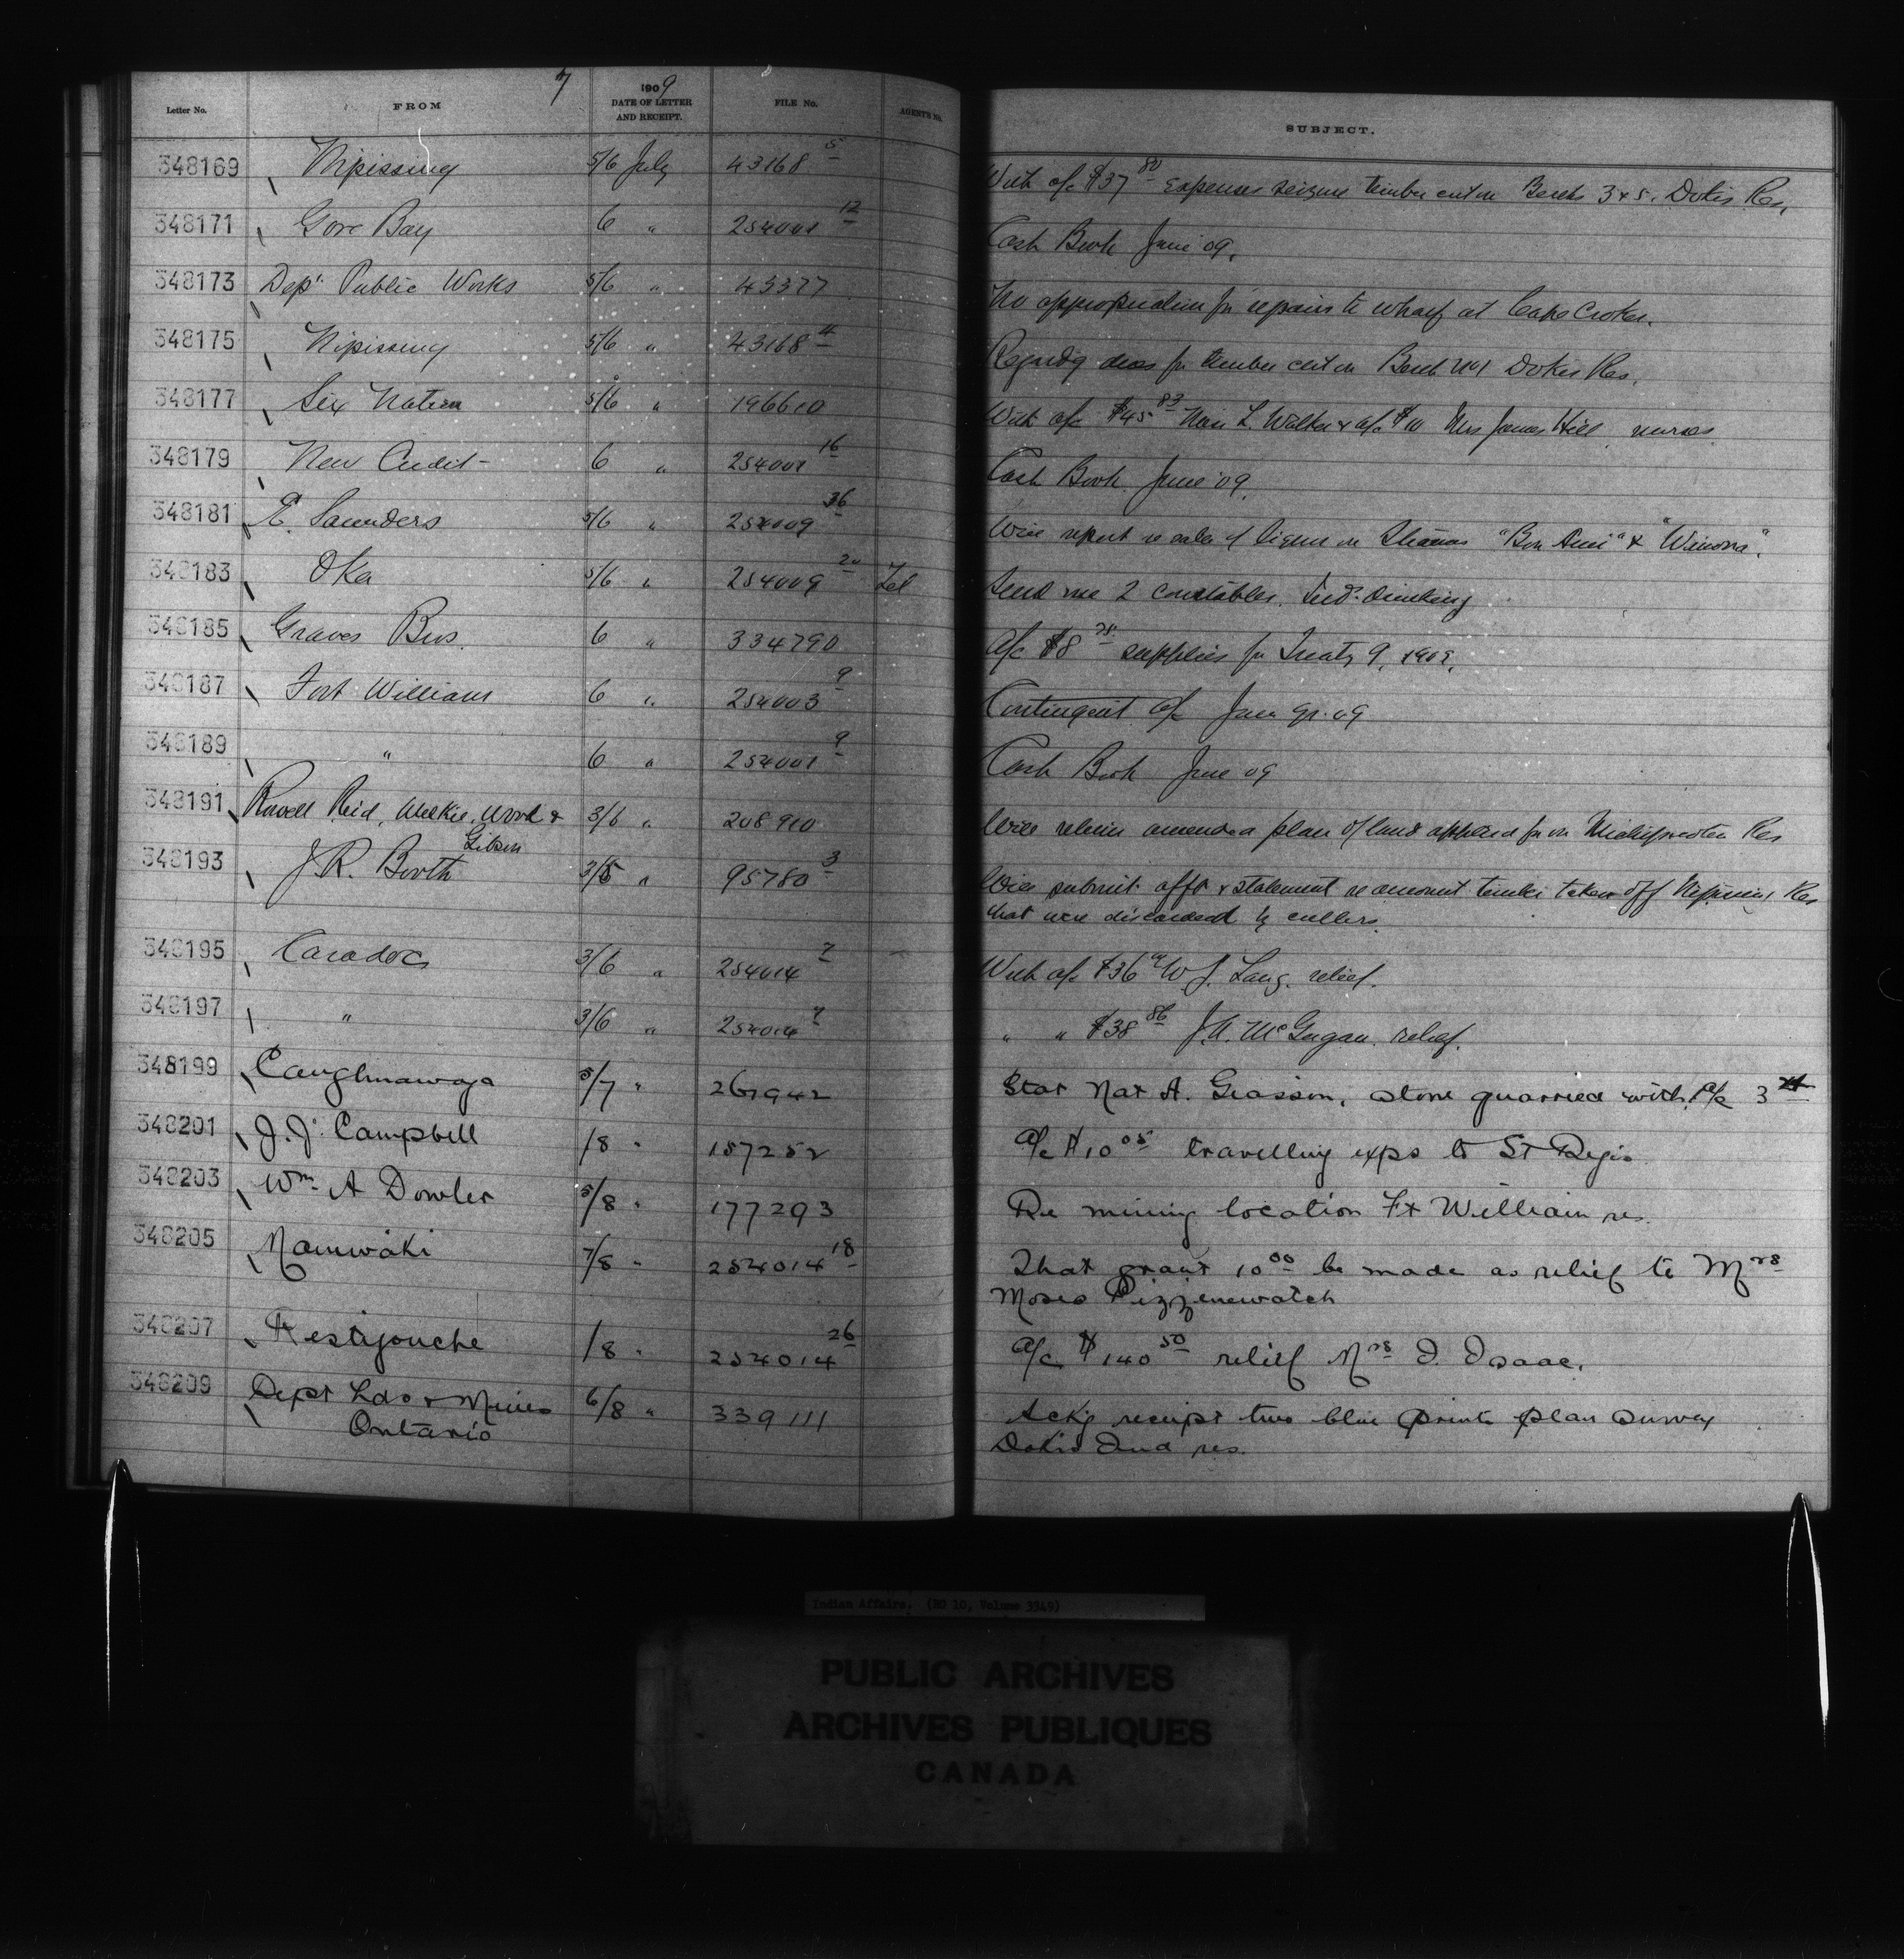 7
Letter No. FROM 1909 DATE OF LETTER AND RECEIPT. FILE No. AGENT'S No. SUBJECT.
348169 Nipissing 5/6 July 43168 5 With a/c $37 80 expenses seizure timber cut on Berths 3 & 5. Dokis Res.
348171 Gore Bay 6 " 254001 12 Cash Book June '09.
348173 Dept Public Works 5/6 " 43377 No appropriation for repairs to wharf at Cape Croker.
348175 Nipissing 5/6 " 43168 4 Regardg dues for timber cut on Berth No 1 Dokis Res.
348177 Six Nation 5/6 " 196610 With a/c $45 83 L. Walker & a/c $10 Mrs James Hill nurses
348179 New Credit 6 " 254001 16 Cash Book June '09.
348181 E. Saunders 5/6 " 254009 36 Will report re sale of liquor on Steamers "Bon Ami" & "Winona".
348183 Oka 5/6 " 254009 20 Tel Send me 2 constables. Inds drinking
348185 Graves Bros. 6 " 334790 A/c $8 supplies for Treaty 9, 1909.
348187 Fort William 6 " 254003 9 Contingent a/c June qr. 09
348189 " 6 " 254001 9 Cash Book June 09
348191 Rowell Reid, Wilkie, Wood & Gibson 3/6 " 208910 Will return amended plan of land applied for on Michipicoten Res
348193 J. R. Booth 3/5 " 95780 3 Will submit affts & statement re amount timber taken off Nipissing Res
that were discarded by cullers.
348195 Caradoc 3/6 " 254014 7 With a/c $36 W. J. Lang. relief.
348197 " 3/6 " 254014 7 " " $38 86 J. A. McGugan. relief.
348199 Caughnawaga 5/7 " 267942 Stat Nat A. Giasson, stone quarried with a/c 3
348201 J. J. Campbell /8 " 157252 a/c $10 05 travelling exps to St Regis
348203 Wm A Dowler 5/8 " 177293 Re mining location Ft William res.
348205 Maniwaki 7/8 " 254014 18 That grant 10 00 be made as relief to Mrs
Moses Pizzenewatch
348207 Restigouche /8 " 254014 26 a/c $140 50 relief Mrs I. Isaac.
348209 Dept Lds & Mines Ontario 6/8 " 339111 Ackg receipt two blue prints plan survey
Dokis Ind res.
Indian Affairs. (RG 10, Volume 3349)
PUBLIC ARCHIVES
ARCHIVES PUBLIQUES
CANADA